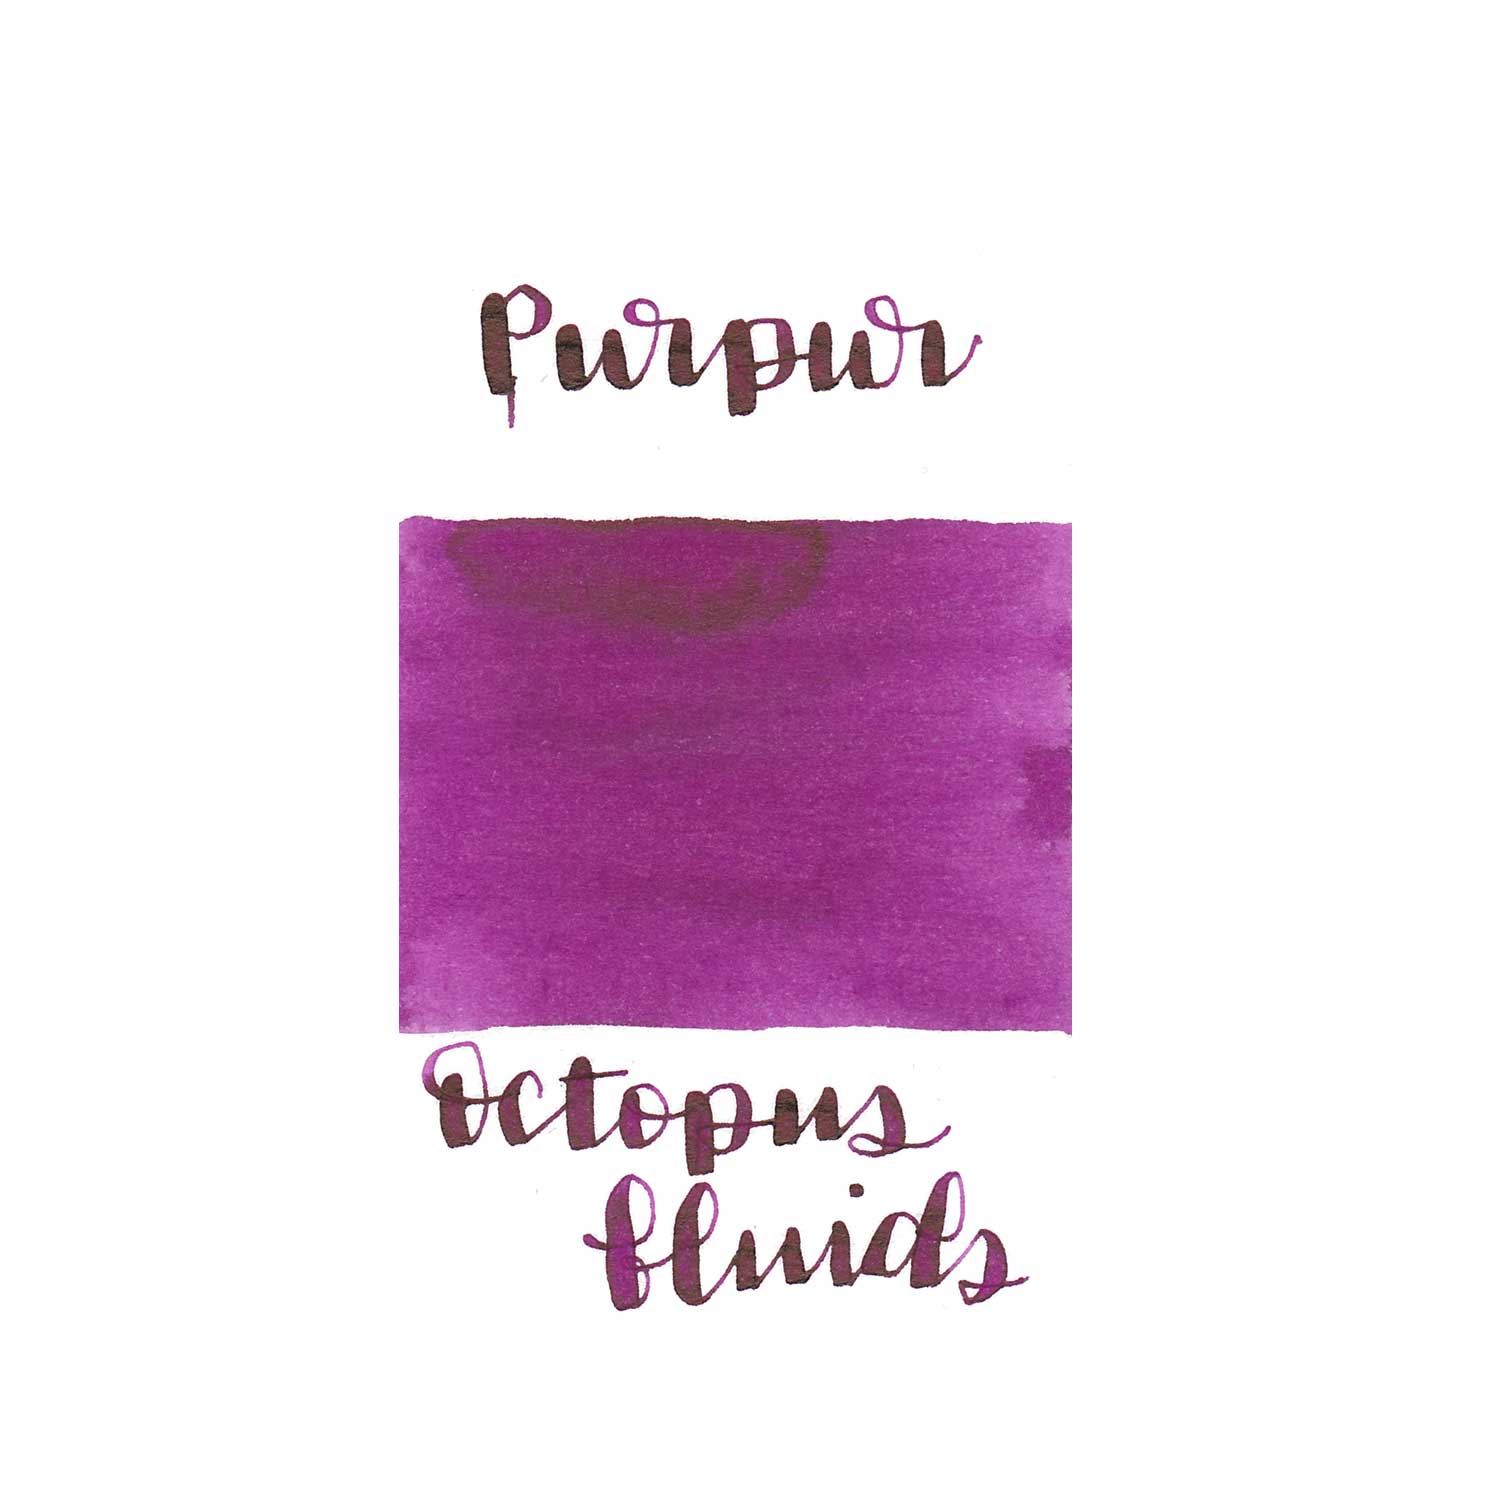 Purpur
Octopus
fluids